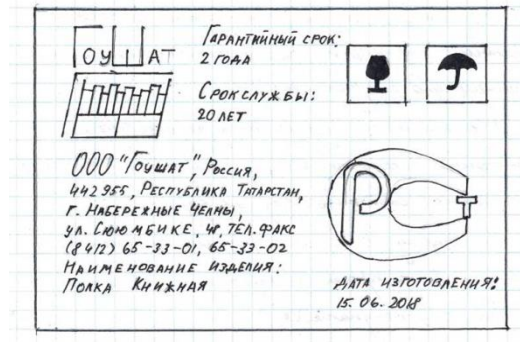 ГОУШАТ
ГАРАНТИЙНЫЙ СРОК:
2 ГОДА
СРОК СЛУЖБЫ:
20 ЛЕТ
ООО "ГОУШАТ", РОССИЯ,
442955, РЕСПУБЛИКА ТАТАРСТАН,
Г. НАБЕРЕЖНЫЕ ЧЕЛНЫ,
УЛ. СЮЮМБИКЕ, 48, ТЕЛ. ФАКС
(8412) 65-33-01, 65-33-02
НАИМЕНОВАНИЕ ИЗДЕЛИЯ:
ПОЛКА КНИЖНАЯ
РСТ
ДАТА ИЗГОТОВЛЕНИЯ:
15.06.2018